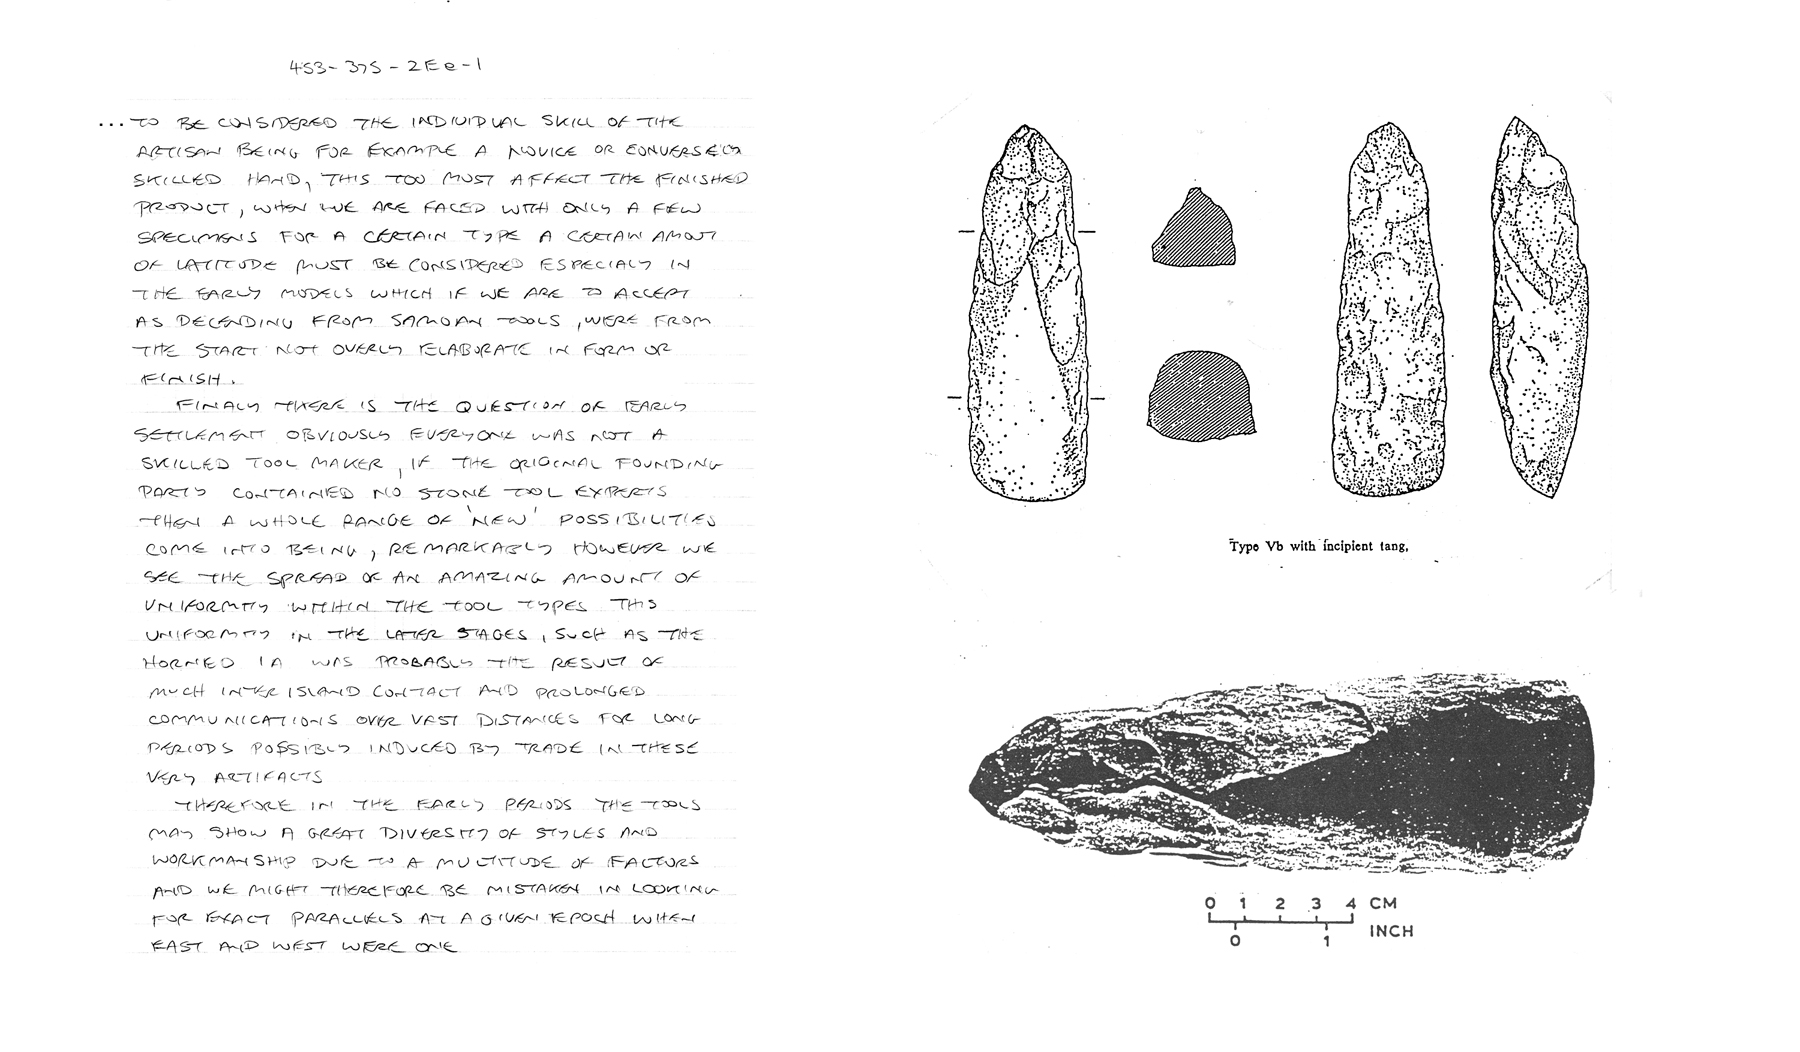 453-375-2Ee-1
...TO BE CONSIDERED THE INDIVIDUAL SKILL OF THE
ARTISAN BEING FOR EXAMPLE A NOVICE OR CONVERSELY
SKILLED HAND, THIS TOO MUST AFFECT THE FINISHED
PRODUCT, WHEN WE ARE FACED WITH ONLY A FEW
SPECIMENS FOR A CERTAIN TYPE A CERTAIN AMOUT
OF LATITUDE MUST BE CONSIDERED ESPECIALY IN
THE EARLY MODELS WHICH IF WE ARE TO ACCEPT
AS DECENDING FROM SAMOAN TOOLS, WERE FROM
THE START NOT OVERLY ELABORATE IN FORM OR
FINISH.
FINALY THERE IS THE QUESTION OF EARLY
SETTLEMENT OBVIOUSLY EVERYONE WAS NOT A
SKILLED TOOL MAKER, IF THE ORIGINAL FOUNDING
PARTY CONTAINED NO STONE TOOL EXPERTS
THEN A WHOLE RANGE OF 'NEW' POSSIBILITIES
COME INTO BEING, REMARKABLY HOWEVER WE
SEE THE SPREAD OF AN AMAZING AMOUNT OF
UNIFORMITY WITHIN THE TOOL TYPES THIS
UNIFORMITY IN THE LATER STAGES, SUCH AS THE
HORNED IA WAS PROBABLY THE RESULT OF
MUCH INTER ISLAND CONTACT AND PROLONGED
COMMUNICATIONS OVER VAST DISTANCES FOR LONG
PERIODS POSSIBLY INDUCED BY TRADE IN THESE
VERY ARTIFACTS
THEREFORE IN THE EARLY PERIODS THE TOOLS
MAY SHOW A GREAT DIVERSITY OF STYLES AND
WORKMANSHIP DUE TO A MULTITUDE OF FACTORS
AND WE MIGHT THEREFORE BE MISTAKEN IN LOOKING
FOR EXACT PARALLELS AT A GIVEN EPOCH WHEN
EAST AND WEST WERE ONE
Type Vb with incipient tang,
0 1 2 3 4 CM
0 1 INCH